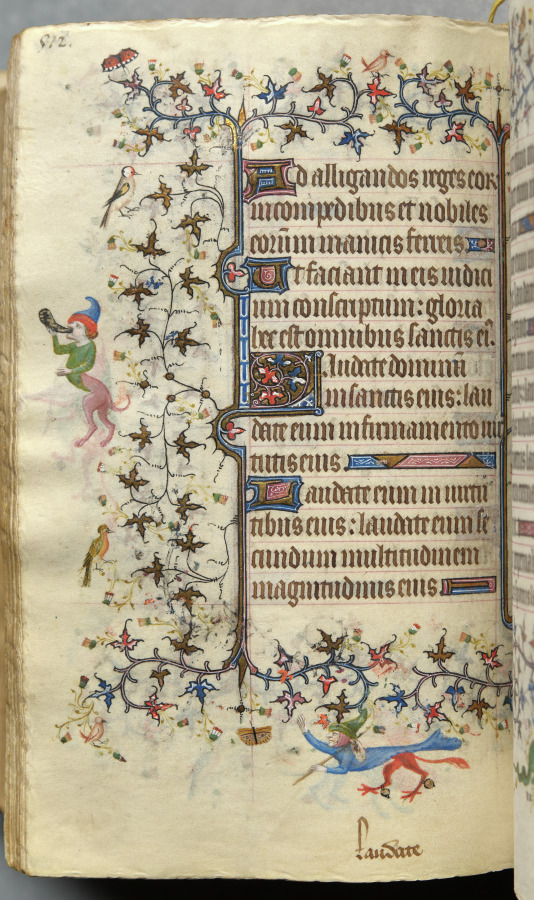 312.
Ad alligandos reges eor
in compedibus et nobiles
eorum in manicis ferreis
Ut faciant in eis iudici
um conscriptum: gloria
hec est omnibus sanctis ei9.
Laudate dominū
in sanctis eius: lau
date eum in firmamento uir
tutis eius
Laudate eum in uirtū
tibus eius: laudate eum se
cundum multitudinem
magnitudinis eius
laudate